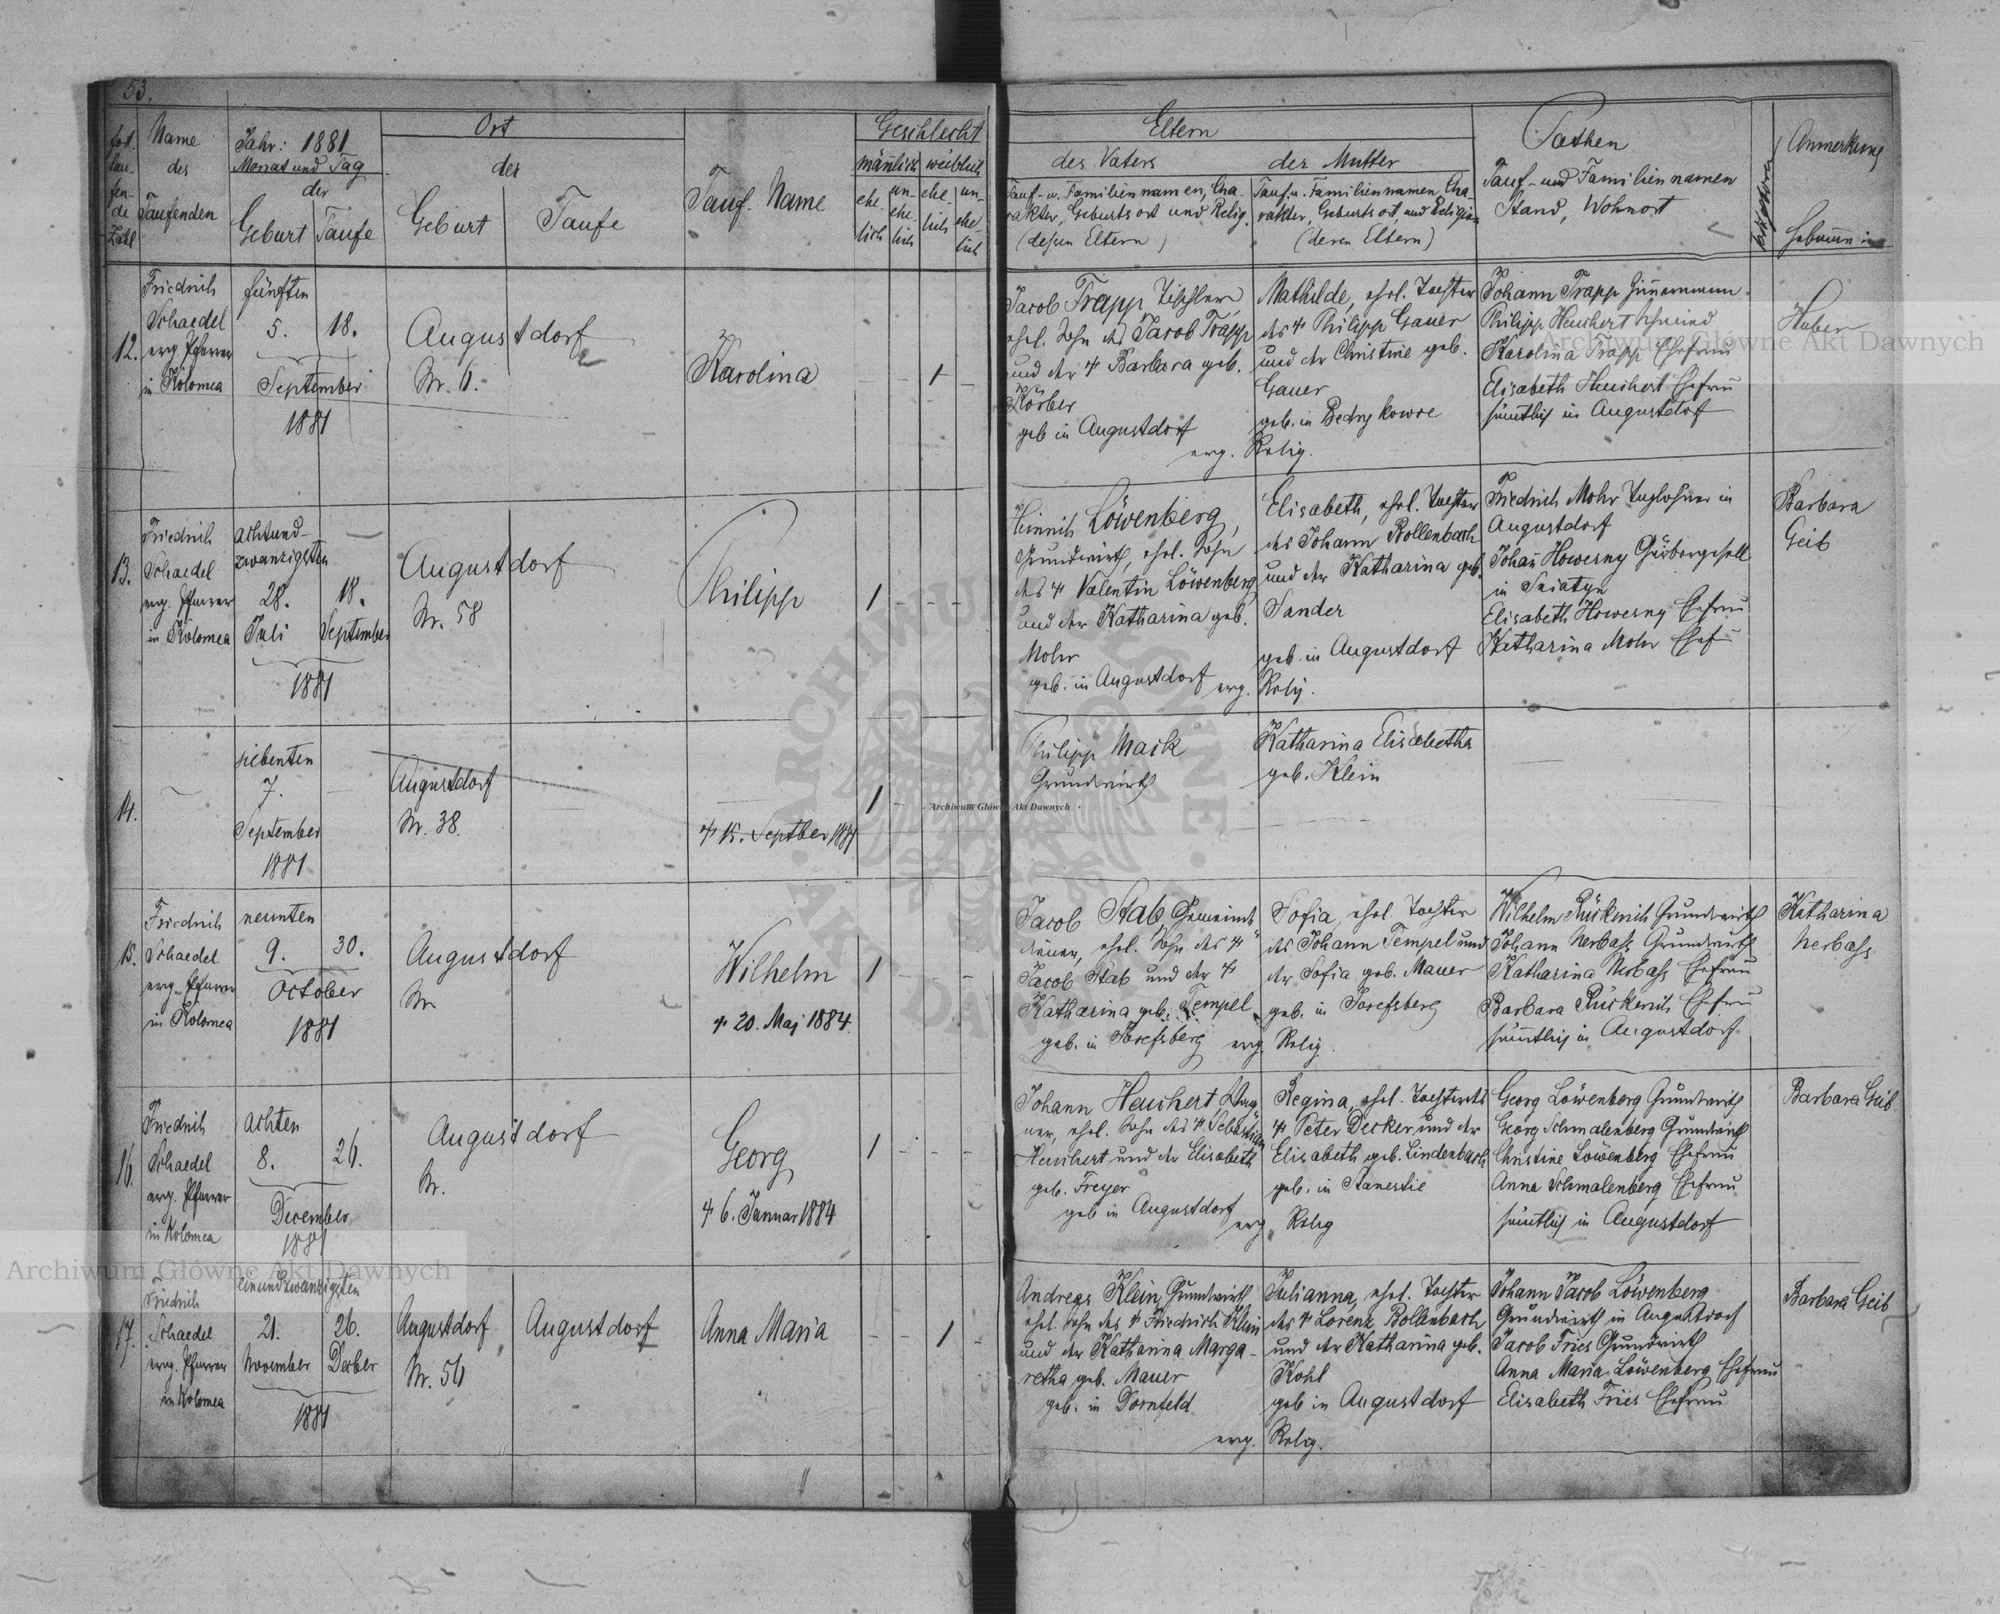 53.
Jahr: 1881
Fort-
lau-
fen-
de
Zahl
Name
des
Taufenden
Monat und Tag
der
Geburt
Taufe
Ort
der
Geburt
Taufe
Tauf-Name
Geschlecht
mänlich
weiblich
ehe-
lich
un-
ehe-
lich
ehe-
lich
un-
ehe-
lich
Eltern
des Vaters
Tauf- u. Familiennamen, Cha-
rakter, Geburtsort und Relig.
(dessen Eltern)
der Mutter
Tauf- u. Familiennamen, Cha-
rakter, Geburtsort, und Religion
(deren Eltern)
Pathen
Tauf- und Familiennamen
Stand, Wohnort
Anmerkung
12.
Friedrich
Schaedel
evg. Pfarrer
in Kolomea
fünften
5.
18.
September
1881
Augustdorf
Nr. 6.
Karolina
1
Jacob Trapp Tischler,
ehel. Sohn des Jacob Trapp
und der + Barbara geb.
Körber
geb in Augustdorf
evg. Relig.
Mathilde, ehel. Tochter
des + Philipp Gauer
und der Christine geb.
Gauer
geb. in Bedrykowce
Johann Trapp Zimmermann
Philipp Heuchert Schmied
Karolina Trapp Ehefrau
Elisabeth Heuchert Ehefrau
sämtlich in Augustdorf
Huber
13.
Friedrich
Schaedel
evg. Pfarrer
in Kolomea
achtund-
zwanzigsten
28.
Juli
18.
September
1881
Augustdorf
Nr. 58
Philipp
1
Heinrich Löwenberg,
Grundwirth, ehel. Sohn
des + Valentin Löwenberg
und der Katharina geb.
Mohr
geb. in Augustdorf
evg. Relig.
Elisabeth, ehel. Tochter
des Johann Bollenbach
und der Katharina geb.
Sander
geb. in Augustdorf
Friedrich Mohr Taglöhner in
Augustdorf
Johan Howerny
in Sniatyn
Elisabeth Howerny Ehefrau
Katharina Mohr Ehef
Barbara
Geib
14.
siebenten
7.
September
1881
Augustdorf
Nr. 38.
+ 15. Septber 1881
1
Philipp Mack
Grundwirth
Katharina Elisabetha
geb. Klein
15.
Friedrich
Schaedel
evg. Pfarrer
in Kolomea
neunten
9.
30.
October
1881
Augustdorf
Nr.
Wilhelm
+ 20. Maj 1884.
1
Jacob Stab Gemeinde
diener, ehel. Sohn des +
Jacob Stab und der +
Katharina geb. Tempel
geb. in Josefsberg
evg. Relig.
Sofia, ehel. Tochter
des Johann Tempel und
der Sofia geb. Mauer
geb. in Josefsberg
Wilhelm Rückerich Grundwirth
Johann Nerbass Grundwirth
Katharina Nerbass Ehefrau
Barbara Rückerich Ehefrau
sämtlich in Augustdorf
Katharina
Nerbass
16.
Friedrich
Schaedel
evg. Pfarrer
in Kolomea
achten
8.
26.
December
1881
Augustdorf
Nr.
Georg
+ 6. Januar 1884
1
Johann Heuchert, Wag-
ner, ehel. Sohn des + Sebastian
Heuchert und der Elisabeth
geb. Freyer
geb in Augustdorf
evg. Relig
Regina, ehel. Tochter des
+ Peter Decker und der
Elisabeth geb. Lindenbach
geb. in Stanestie
Georg Löwenberg Grundwirth
Georg Schmalenberg Grundwirth
Christine Löwenberg Ehefrau
Anna Schmalenberg Ehefrau
sämtlich in Augustdorf
Barbara Geib
17.
Friedrich
Schaedel
evg. Pfarrer
in Kolomea
einundzwanzigsten
21.
November
26.
Decber
1881
Augustdorf
Nr. 54
Augustdorf
Anna Maria
1
Andreas Klein, Grundwirth
ehel. Sohn des + Friedrich Klein
und der Katharina Marga-
retha geb. Mauer
geb. in Dornfeld
evg. Relig.
Julianna, ehel. Tochter
des + Lorenz Bollenbach
und der Katharina geb.
Kohl
geb in Augustdorf
Johann Jacob Löwenberg
Grundwirth in Augustdorf
Jacob Fries Grundwirth
Anna Maria Löwenberg Ehefrau
Elisabeth Fries Ehefrau
Barbara Geib
Archiwum Główne Akt Dawnych
Archiwum Główne Akt Dawnych
- Archiwum Główne Akt Dawnych -
ARCHIWUM GŁÓWNE AKT DAWNYCH